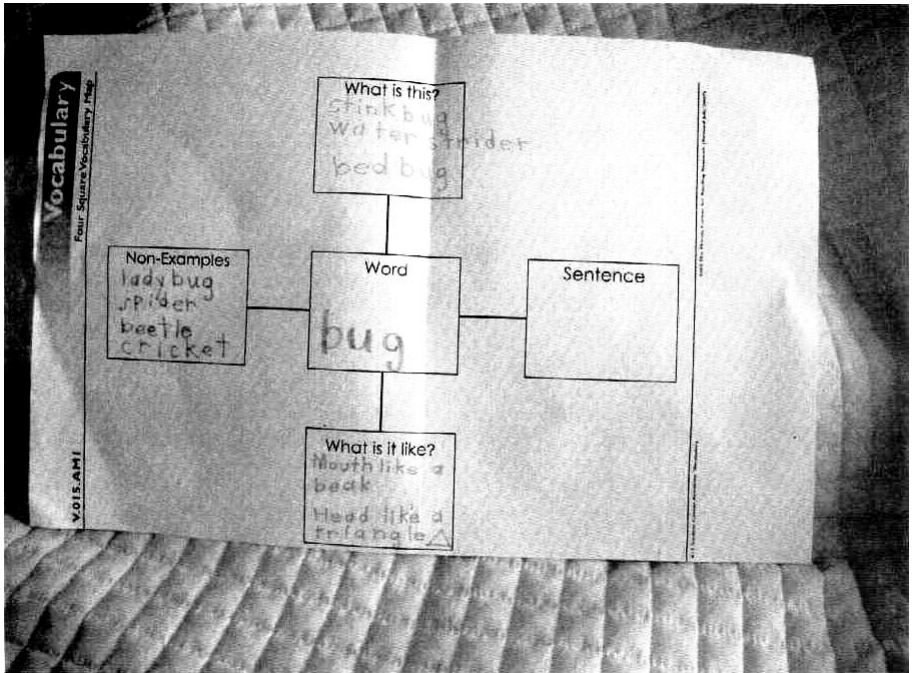 Vocabulary
Four Square Vocabulary Map
V.015.AM1
What is this?
stink bug
water strider
bed bug
Non-Examples
ladybug
spider
beetle
cricket
Word
bug
Sentence
What is it like?
Mouth like a
beak
Head like a
triangle